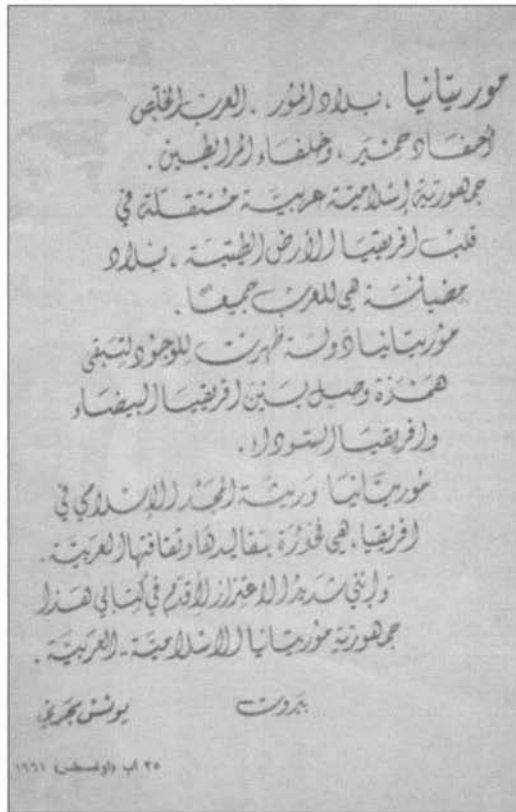 موريتانيا ، بلاد المور ، العرب الخلّص
أحفاد حمير ، وخلفاء المرابطين .
جمهورية إسلامية عربية مستقلة في
قلب افريقيا الأرض الطيبة ، بلاد
مضيافة هي للعرب جميعًا .
موريتانيا دولة ظهرت للوجود لتبقى
همزة وصل بين افريقيا البيضاء
وافريقيا السوداء .
موريتانيا وريثة المجد الإسلامي في
افريقيا ، هي فخورة بتقاليدها وثقافتها العربية .
وإنني شديد الاعتزاز لأقدم في كتابي هذا
جمهورية موريتانيا الاسلامية - العربية .
بيروت يونس بحري
٢٥ آب (اوغسطس) ١٩٦١